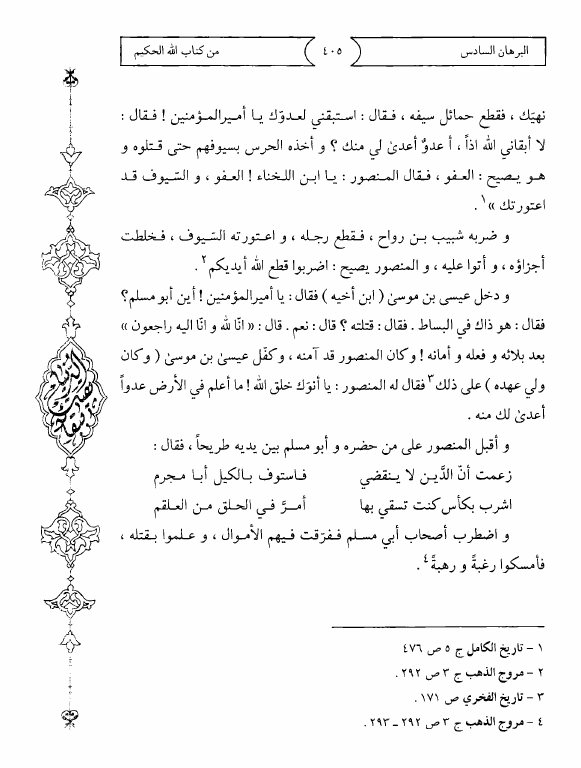 البرهان السادس
٤٠٥
من كتاب الله الحكيم
نهيَك ، فقطع حمائل سيفه ، فـقال : استبقني لعدوّك يـا أمـيرالمـؤمنين ! فـقال :
لا أبقاني الله اذاً ، أ عدوٌ أعدىٰ لي منك ؟ و أخذه الحرس بسيوفهم حتى قـتلوه و
هـو يـصيح : العفو ، فـقال المـنصور : يـا ابـن اللـخناء ! العفو ، و السّـيوف قـد
اعتورتك »١ .
و ضربه شبيب بـن رواح ، فـقطع رجـله ، و اعـتورته السّـيوف ، فـخلطت
أجزاؤه ، و أتوا عليه ، و المنصور يصيح : اضربوا قطع الله أيديكم٢ .
و دخل عيسى بن موسىٰ ( ابن أخيه ) فقال : يا أميرالمؤمنين ! أين أبو مسلم؟
فقال : هو ذاك في البساط . فقال : قتلته ؟ قال : نعم . قال : « انّا لله و انّا اليه راجعون »
بعد بلائه و فعله و أمانه ! وكان المنصور قد آمنه ، وكفّل عيسىٰ بن موسىٰ ( وكان
ولي عهده ) على ذلك٣ فقال له المنصور : يا أنوَك خلق الله ! ما أعلم في الأرض عدواً
أعدىٰ لك منه .
و أقبل المنصور على من حضره و أبو مسلم بين يديه طريحاً ، فقال :
زعمت أنّ الدَّيـن لا يـنقضي فـاستوف بـالكيل أبـا مـجرم
اشرب بكأس كنت تسقي بها أمـرَّ فـي الحـلق مـن العـلقم
و اضطرب أصحاب أبي مسـلم فـفرّقت فـيهم الأمـوال ، و عـلموا بـقتله ،
فأمسكوا رغبةً و رهبةً٤ .
١ - تاريخ الكامل ج ٥ ص ٤٧٦
٢ - مروج الذهب ج ٣ ص ٢٩٢ .
٣ - تاريخ الفخري ص ١٧١ .
٤ - مروج الذهب ج ٣ ص ٢٩٢ ـ ٢٩٣ .